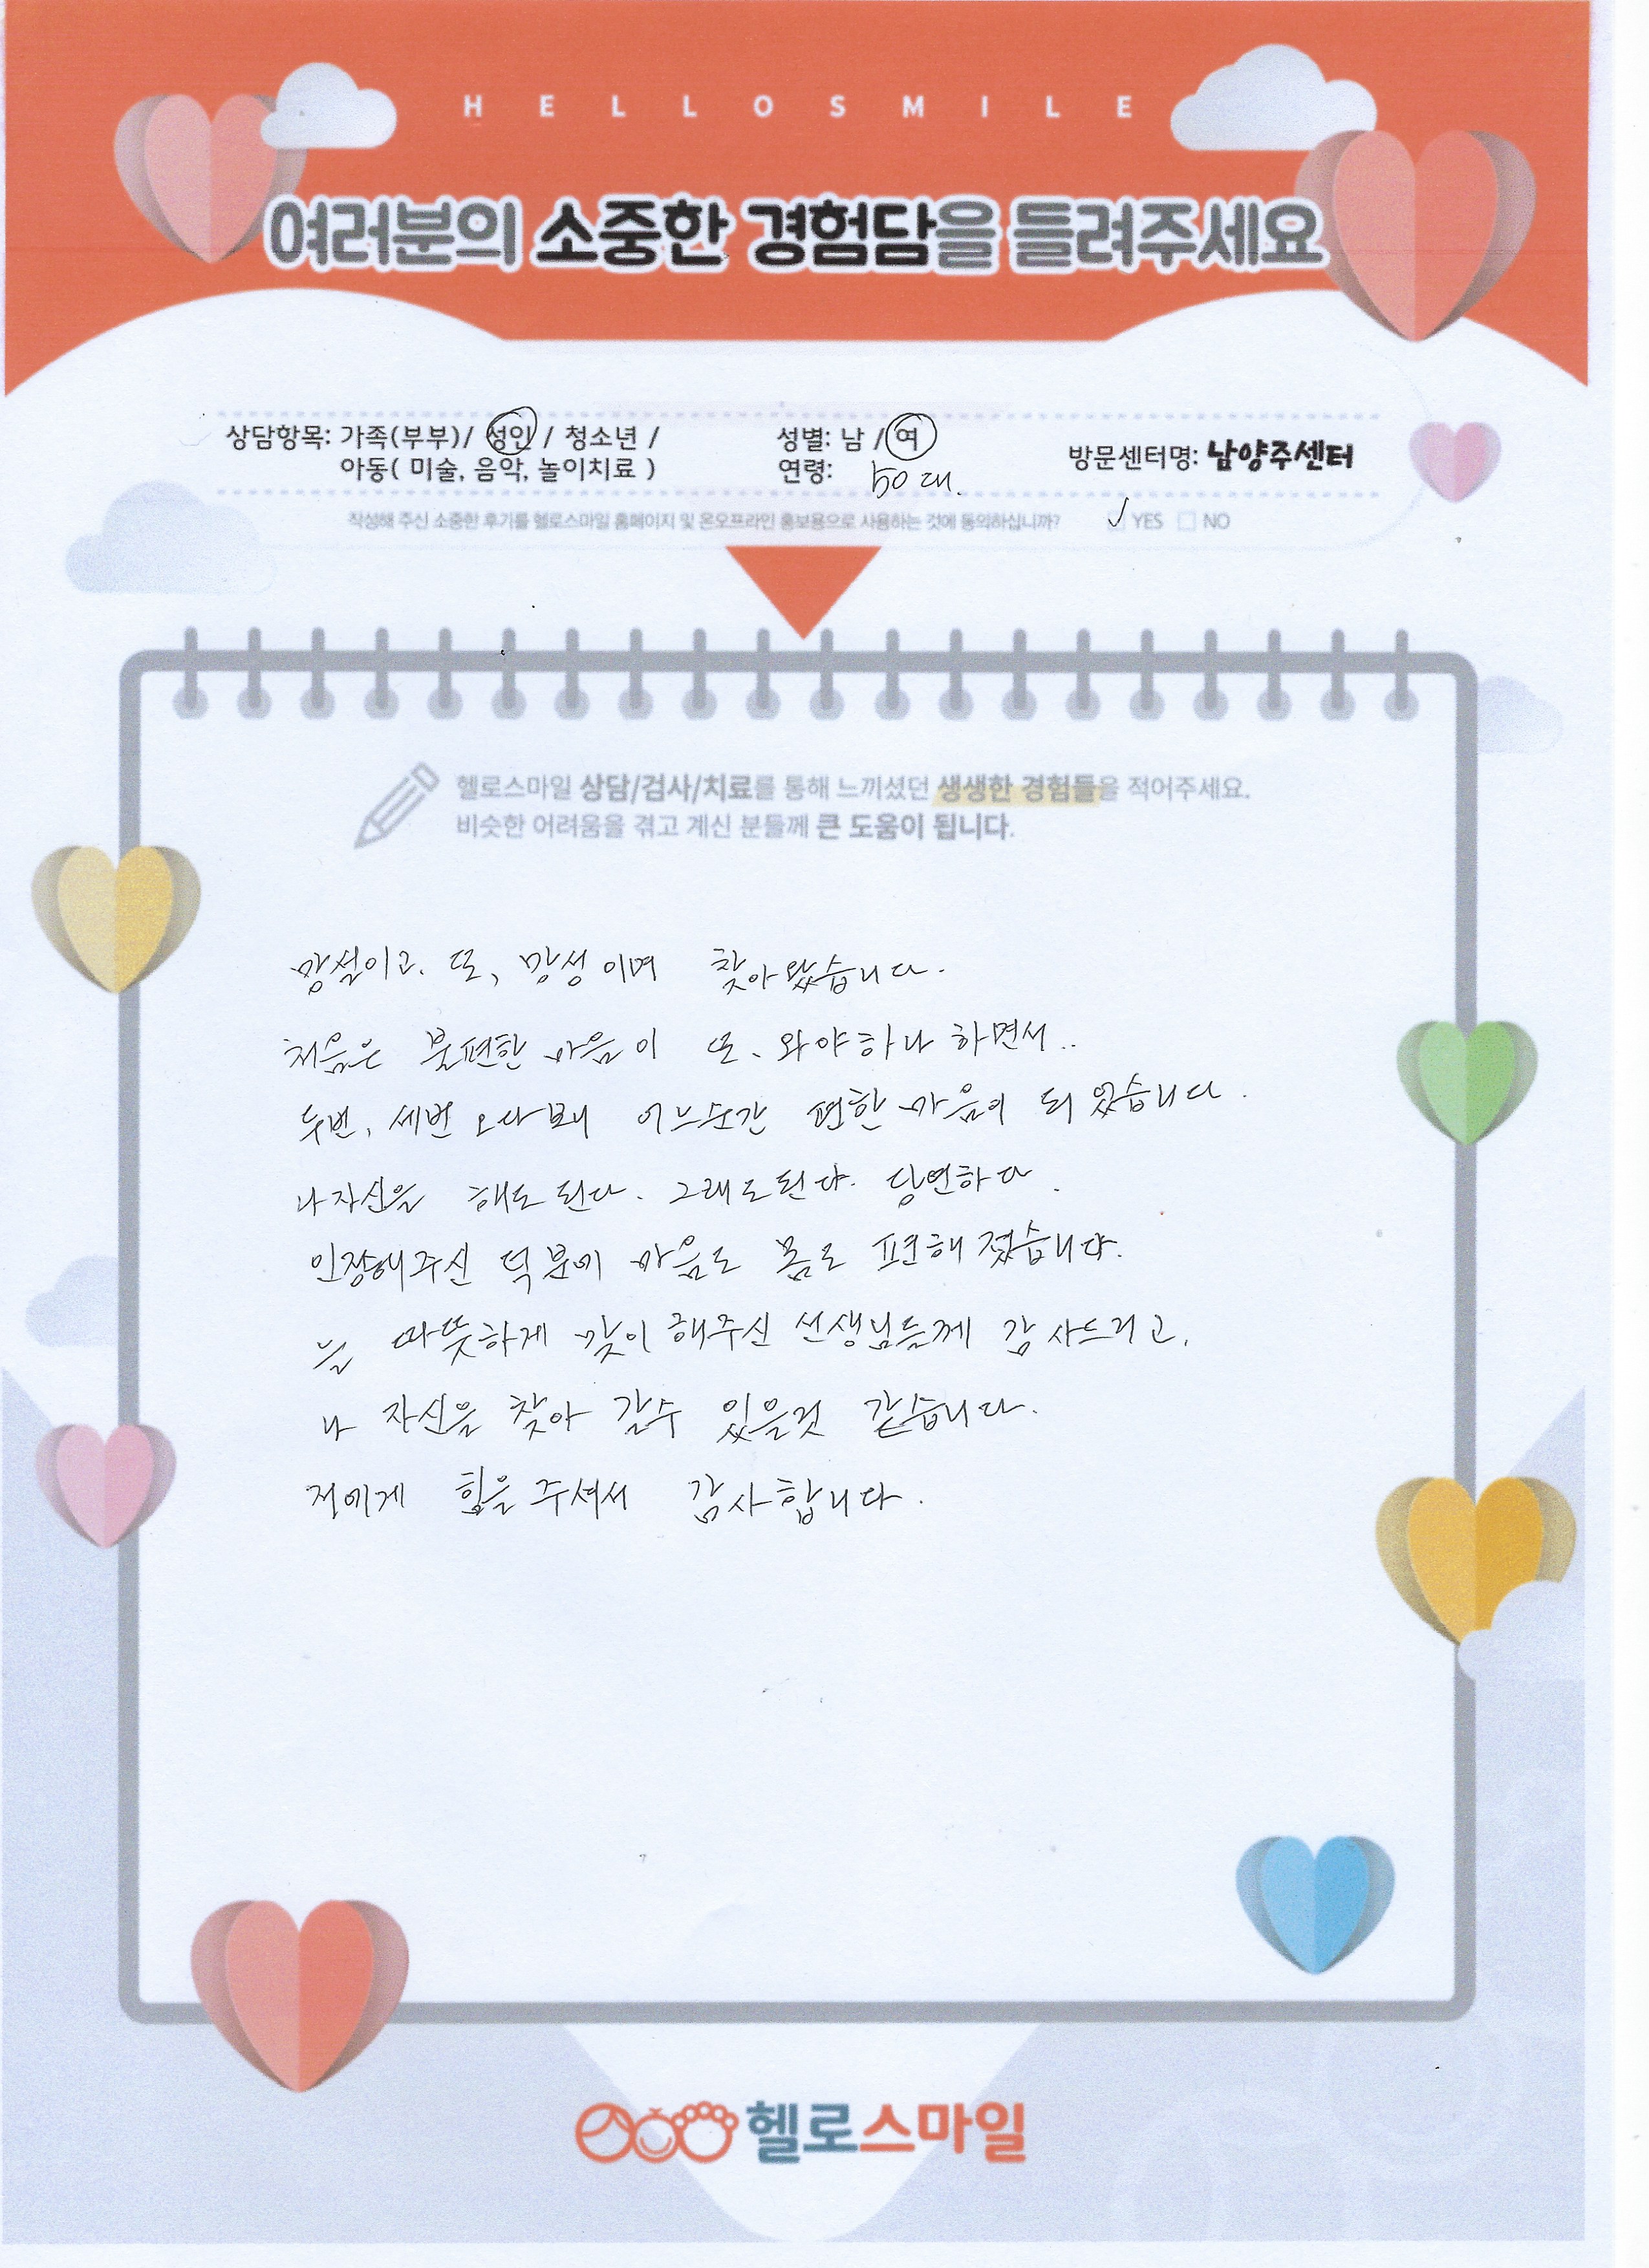 HELLOSMILE
여러분의 소중한 경험담을 들려주세요
상담항목: 가족(부부)/ 성인 / 청소년 /
아동( 미술, 음악, 놀이치료 )
성별: 남 / 여
연령: 50대.
방문센터명: 남양주센터
작성해 주신 소중한 후기를 헬로스마일 홈페이지 및 온오프라인 홍보용으로 사용하는 것에 동의하십니까? ✓ YES □ NO
헬로스마일 상담/검사/치료를 통해 느끼셨던 생생한 경험들을 적어주세요.
비슷한 어려움을 겪고 계신 분들께 큰 도움이 됩니다.
망설이고. 또, 망성이며 찾아왔습니다.
처음은 불편한 마음이 또. 와야하나 하면서..
두번, 세번 오다보니 어느순간 편한 마음이 되었습니다.
나자신을 해도 된다. 그래도된다. 당연하다.
인정해주신 덕분에 마음도 몸도 편해졌습니다.
늘 따뜻하게 맞이해주신 선생님들께 감사드리고,
나 자신을 찾아 갈수 있을것 같습니다.
저에게 힘을 주셔서 감사합니다.
헬로스마일